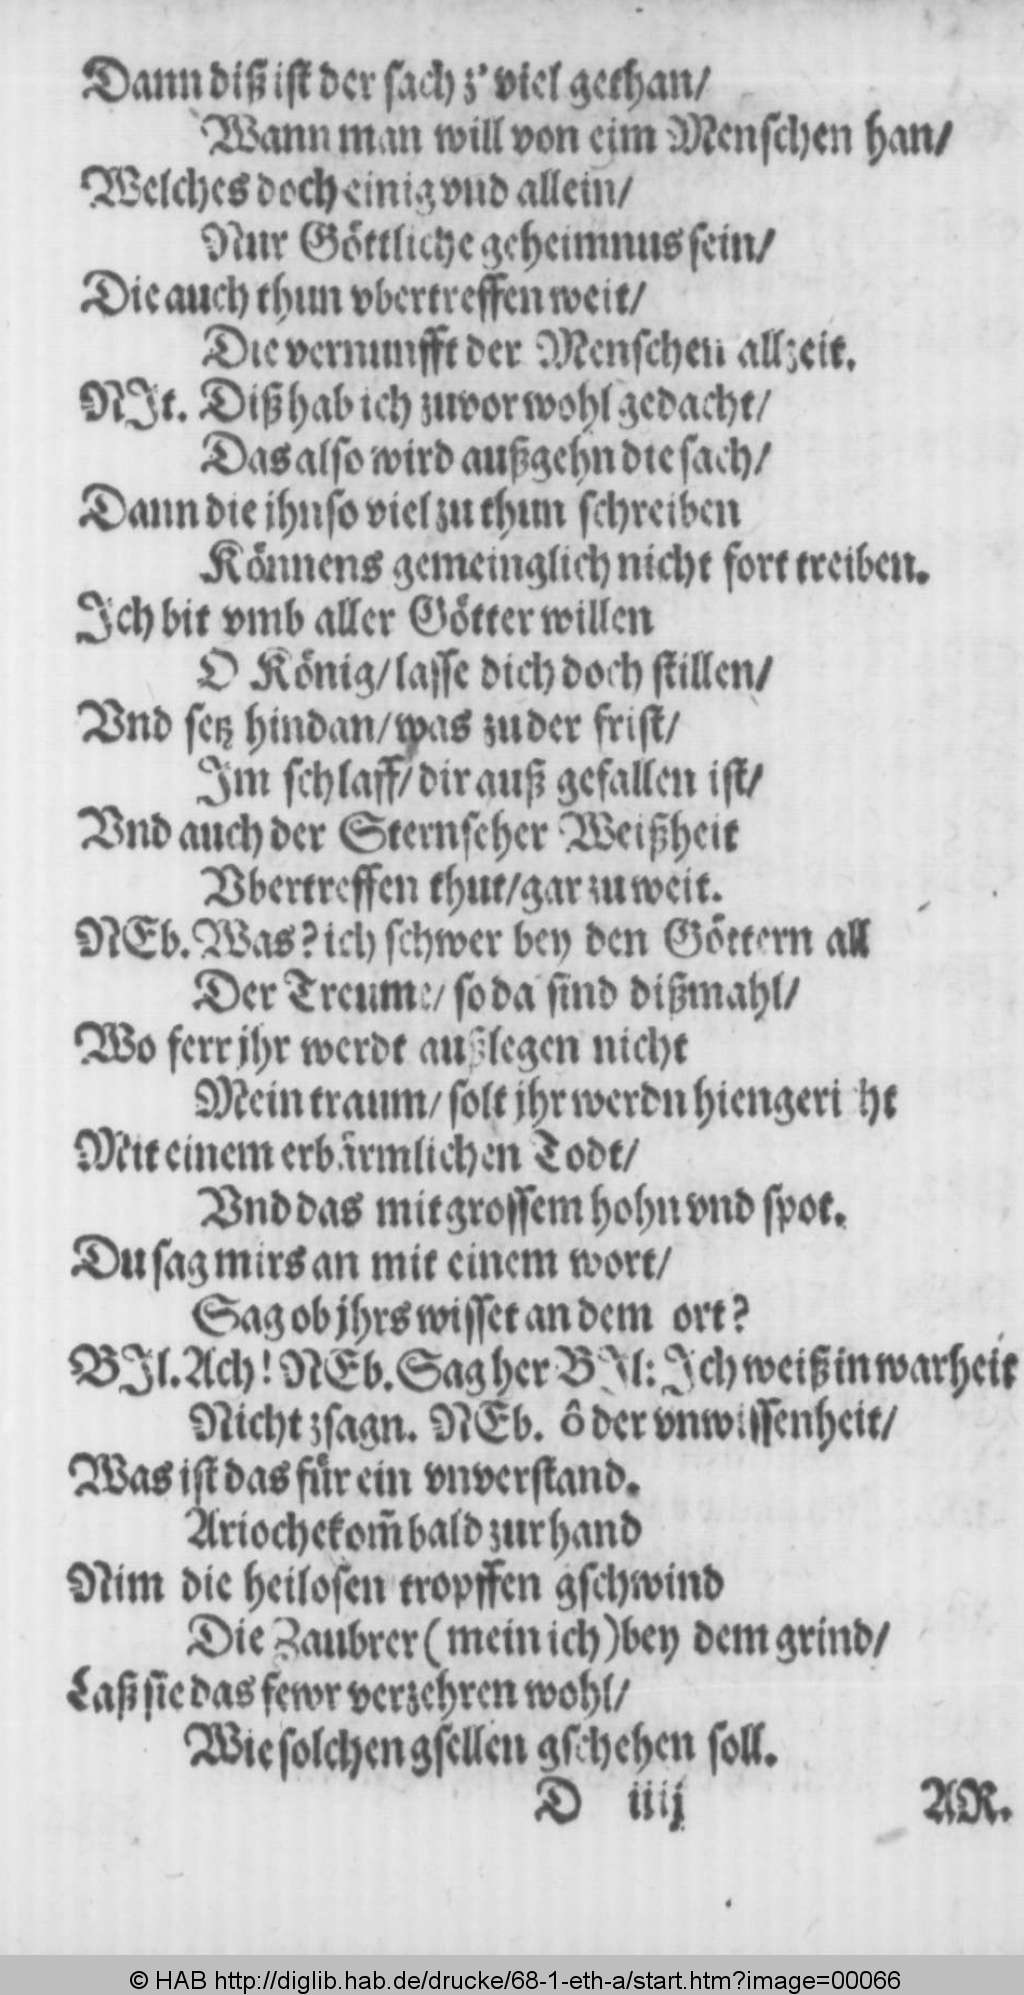 Dann diß ist der sach z' viel gethan/
Wann man will von eim Menschen han/
Welches doch einig vnd allein/
Nur Göttliche geheimnus sein/
Die auch thun vbertreffen weit/
Die vernunfft der Menschen allzeit.
NJt. Diß hab ich zuvor wohl gedacht/
Das also wird außgehn die sach/
Dann die jhn so viel zu thun schreiben
Können s gemeinglich nicht fort treiben.
Jch bit vmb aller Götter willen
O König/ lasse dich doch stillen/
Vnd setz hindan/ was zu der frist/
Jm schlaff/ dir auß gefallen ist/
Vnd auch der Sternseher Weißheit
Vbertreffen thut/ gar zu weit.
NEb. Was? ich schwer bey den Göttern all
Der Treume/ so da sind dißmahl/
Wo ferr jhr werdt außlegen nicht
Mein traum/ solt jhr werdn hiengericht
Mit einem erbärmlichen Todt/
Vnd das mit grossem hohn vnd spot.
Du sag mirs an mit einem wort/
Sag ob jhrs wisset an dem ort?
BJl. Ach! NEb. Sag her BJl: Jch weiß in warheit
Nicht zsagn. NEb. ô der vnwissenheit/
Was ist das für ein vnverstand.
Arioche kom̄ bald zur hand
Nim die heilosen tropffen gschwind
Die Zaubrer (mein ich) bey dem grind/
Laß sie das fewr verzehren wohl/
Wie solchen gsellen gschehen soll.
D iiij AR.
© HAB http://diglib.hab.de/drucke/68-1-eth-a/start.htm?image=00066